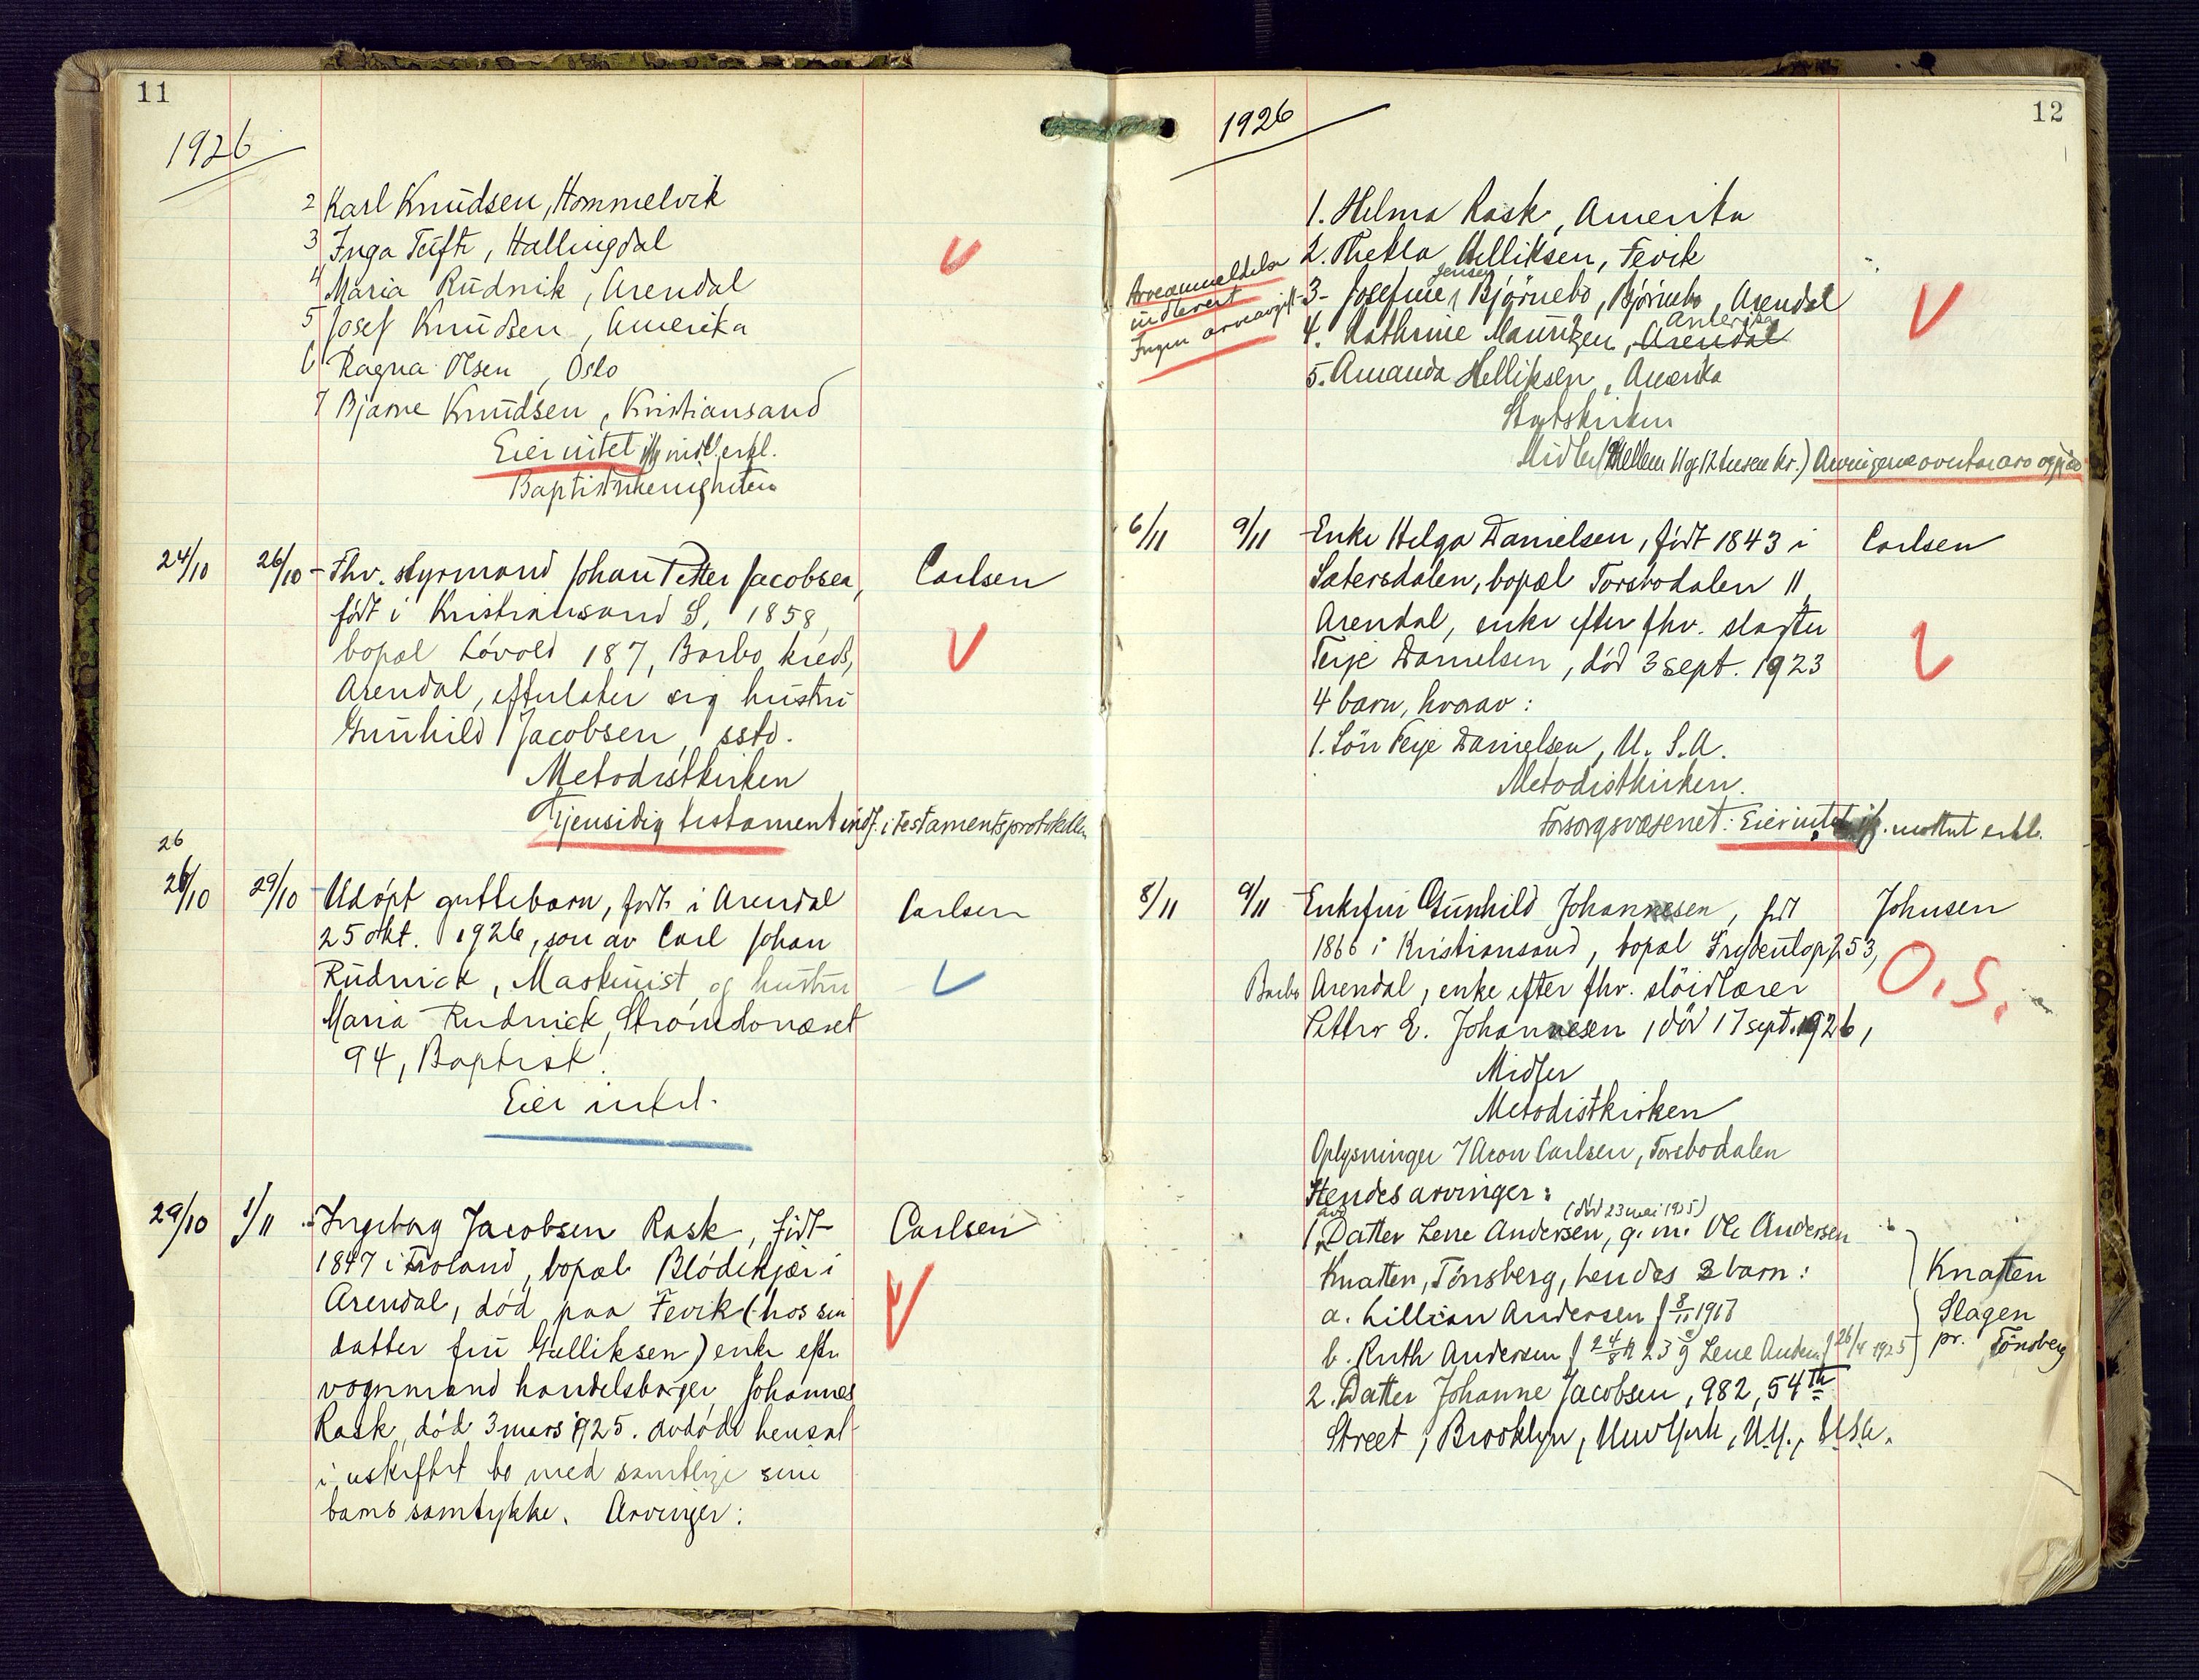 11
1926
2 Karl Knudsen, Hommelvik
3 Inga Tufte, Hallingdal
4 Maria Rudnik, Arendal
5 Josef Knudsen, Amerika
6 Ragna Olsen, Oslo
7 Bjarne Knudsen, Kristiansand
Eier intet ifg. erkl.
Baptistmenigheten
24/10 26/10 - Fhv. styrmand Johan Petter Jacobsen, Carlsen
født i Kristiansand S, 1858,
bopæl Løvold 187, Barbo kreds,
Arendal, efterlater sig hustru
Gunhild Jacobsen, sstd.
Metodistkirken
Gjensidig testament indf. i testamentsprotokollen
26
26/10 29/10 - Udøpt guttebarn, født i Arendal Carlsen
25 okt. 1926, søn av Carl Johan
Rudnick, Maskinist og hustru
Maria Rudnick, Strømsbonæset
94, Baptist.
Eier intet.
29/10 1/11 Ingeborg Jacobsen Rask, født Carlsen
1847 i Froland, bopæl Blødekjær i
Arendal, død paa Fevik (hos sin
datter fru Helliksen) enke efter
vognmand handelsborger Johannes
Rask, død 3 mars 1925. Avdøde hensat
i uskiftet bo med samtlige sine
barns samtykke. Arvinger:
12
1926
1. Helma Rask, Amerika
2. Thekla Helliksen, Fevik
Arveanmeldelse
indlevert
Ingen arveavgift
Jensen
3- Josefine Bjørnebo, Bjørnebo, Arendal
Amerika
4. Kathrine Mauritzen, Arendal
5. Amanda Helliksen, Amerika
Statskirken
Midler (Mellem 11 og 12 tusen kr.) Arvingene overtar arv og gjæld
6/11 9/11 Enke Helga Danielsen, født 1843 i Carlsen
Sætersdalen, bopæl Torsbodalen 11
Arendal, enke efter fhv. slagter
Terje Danielsen, død 3 sept. 1923
4 barn, hvorav:
1. Søn Terje Danielsen, U.S.A.
Metodistkirken.
Forsorgsvæsenet: Eier intet ifg. mottat erkl.
8/11 9/11 Enkefru Gunhild Johannesen, født Johnsen
1866 i Kristiansand, bopæl Frydentop 253,
Barbo Arendal, enke efter fhv. sløidlærer O.S.
Petter E. Johannesen, død 17 sept. 1926,
Midler
Metodistkirken
Oplysninger v/ Aron Carlsen, Torsbodalen
Hendes arvinger:
avd (død 23 mai 1925)
1. Datter Lene Andersen, g. m. Ole Andersen
Knatten, Tønsberg, hendes 2 barn: Knatten
a. Lillian Andersen f 8/11 1918 Slagen
b. Ruth Andersen f 24/8 23 og Lene Andersen f 26/4 1925 pr. Tønsberg
2. Datter Johanne Jacobsen, 982, 54th
Street, Brooklyn, New York, N.Y., U.S.A.